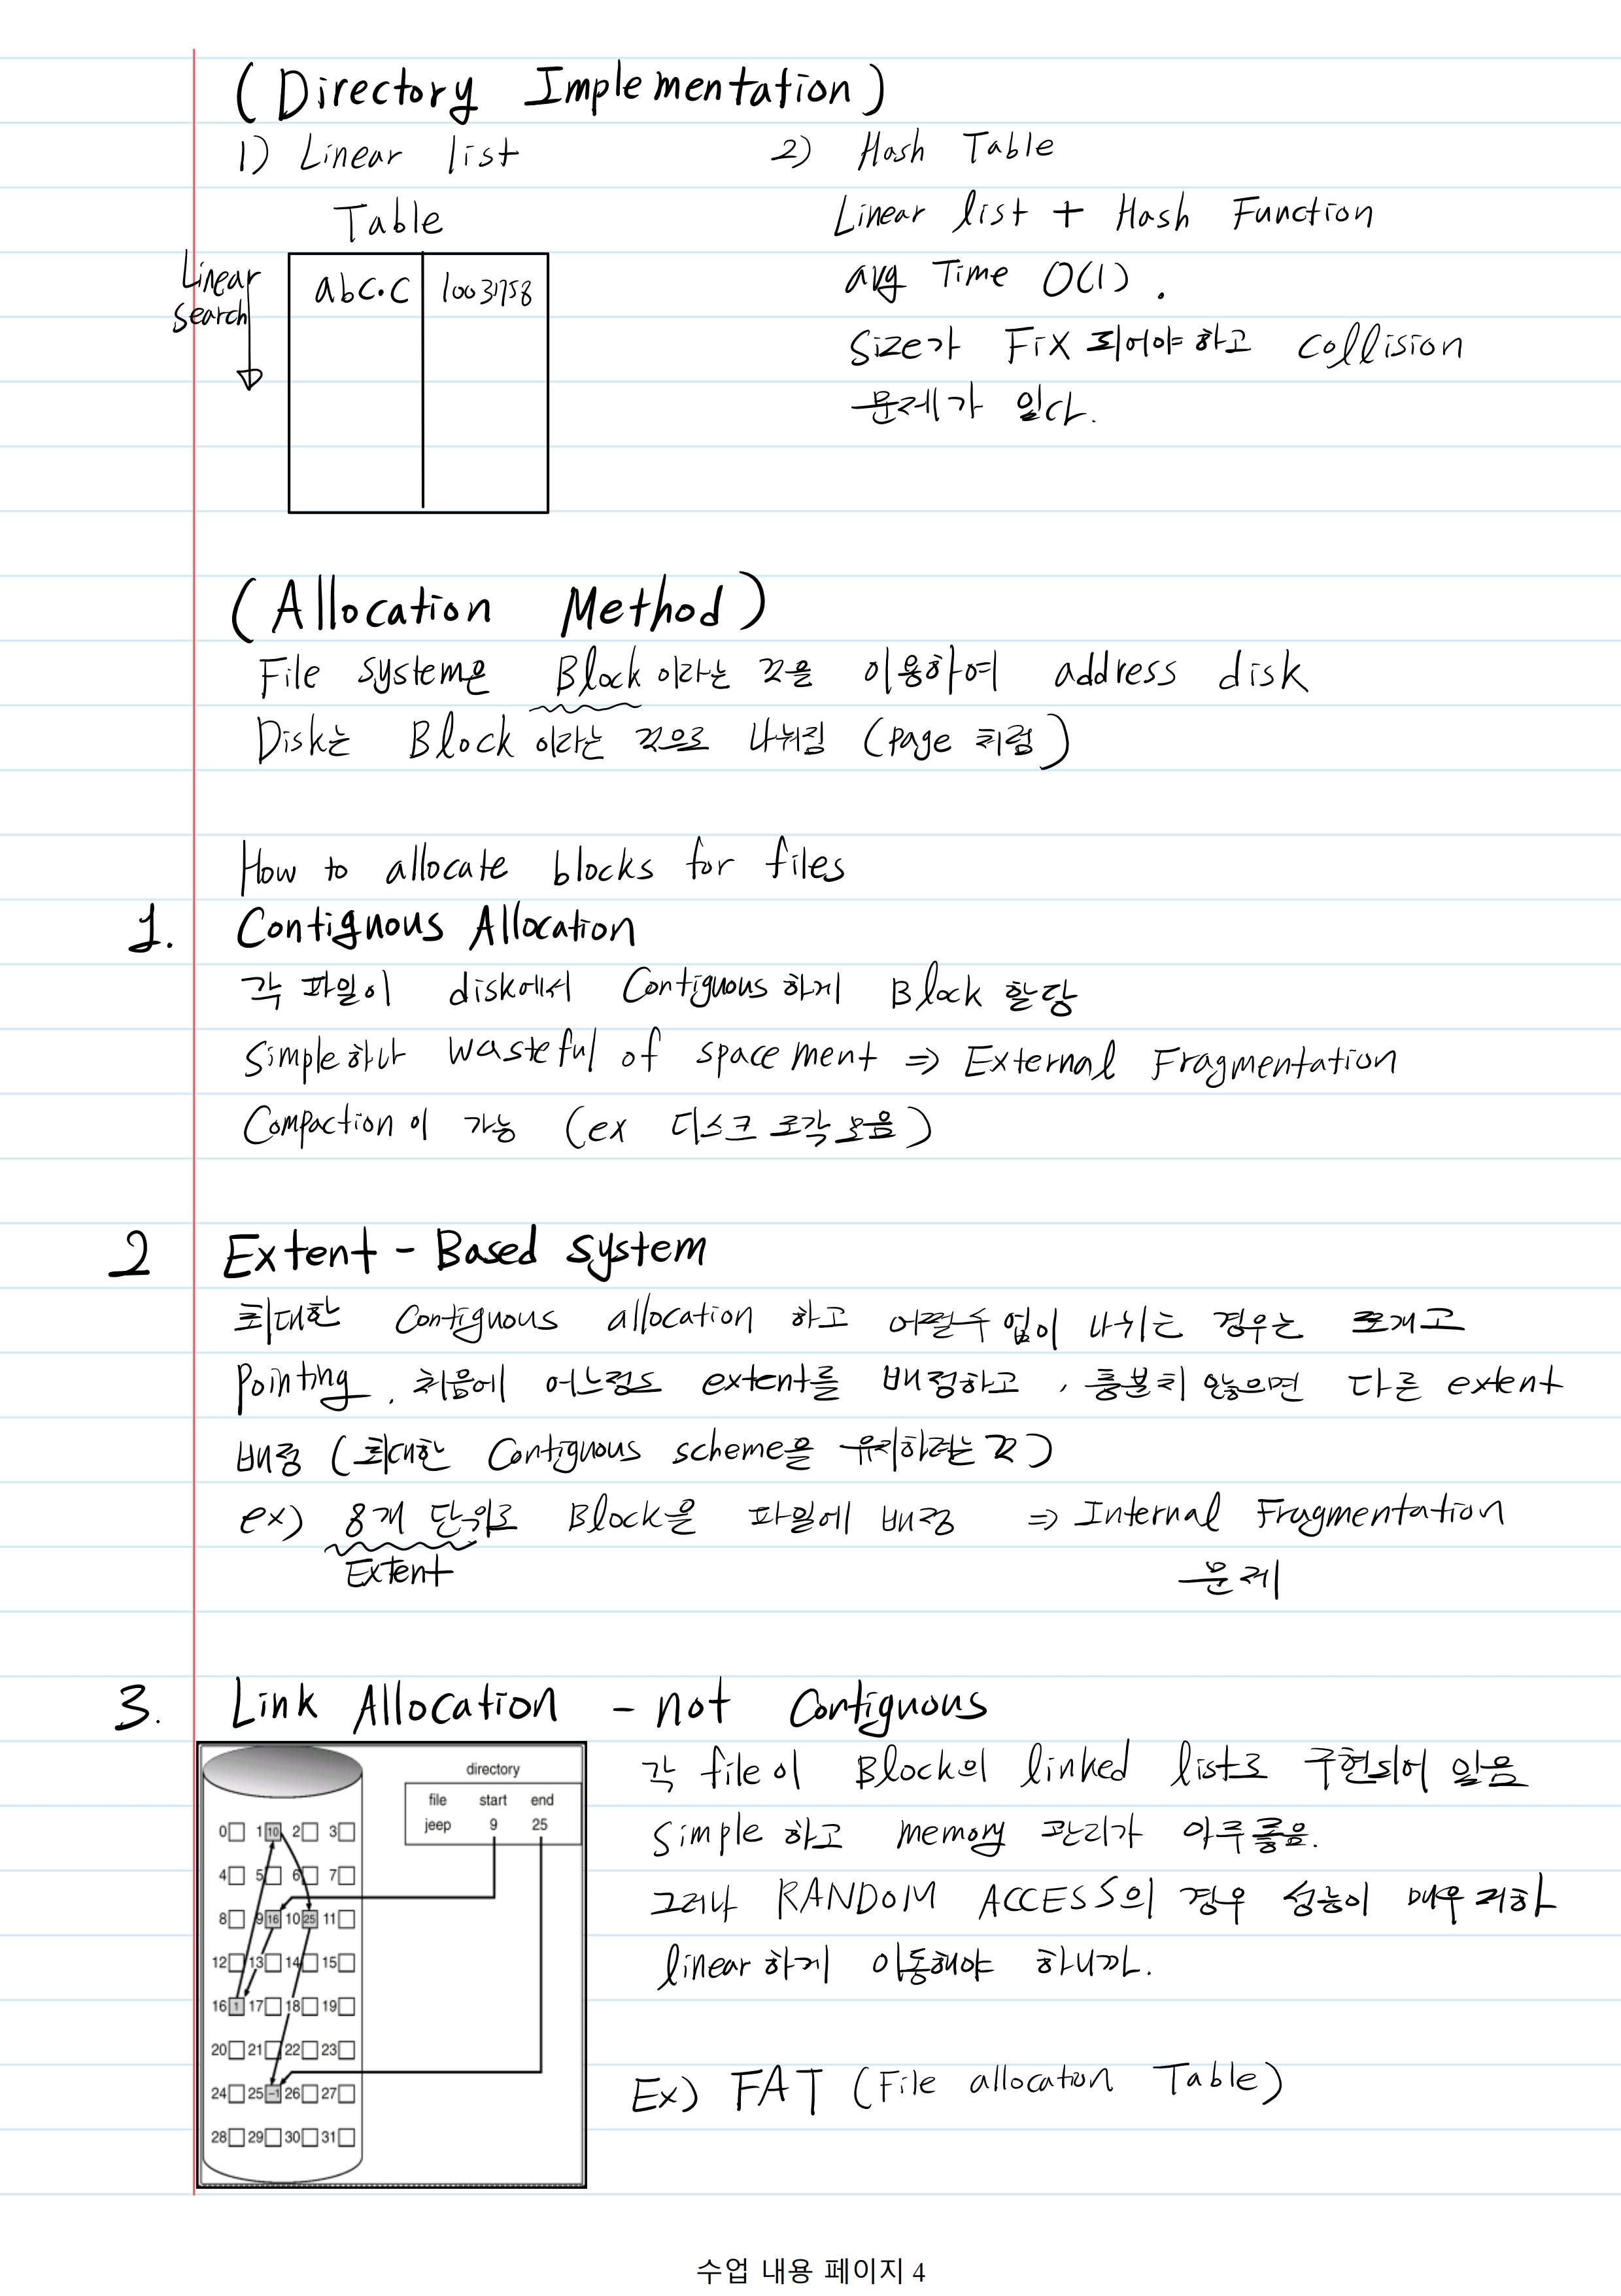 (Directory Implementation)
1) Linear list
Table
Linear
search
abc.c 10031758
2) Hash Table
Linear list + Hash Function
avg Time O(1).
Size가 Fix 되어야 하고 Collision
문제가 있다.
(Allocation Method)
File system은 Block 이라는 것을 이용하여 address disk
Disk는 Block 이라는 것으로 나눠짐 (page 처럼)
How to allocate blocks for files
1. Contiguous Allocation
각 파일이 disk에서 Contiguous 하게 Block 할당
Simple하나 wasteful of space ment ⇒ External Fragmentation
Compaction이 가능 (ex 디스크 조각 모음)
2 Extent - Based system
최대한 Contiguous allocation 하고 어쩔수 없이 나뉘는 경우는 쪼개고
Pointing. 처음에 어느정도 extent를 배정하고, 충분치 않으면 다른 extent
배정 (최대한 Contiguous scheme을 유지하려는 것)
ex) 8개 단위로 Block을 파일에 배정 ⇒ Internal Fragmentation
Extent 문제
3. Link Allocation - not Contiguous
directory
file start end
jeep 9 25
0 1 10 2 3
4 5 6 7
8 9 16 10 25 11
12 13 14 15
16 1 17 18 19
20 21 22 23
24 25 -1 26 27
28 29 30 31
각 file이 Block의 linked list로 구현되어 있음
Simple 하고 memory 관리가 아주 좋음.
그러나 RANDOM ACCESS의 경우 성능이 매우 저하
linear 하게 이동해야 하니까.
Ex) FAT (File allocation Table)
수업 내용 페이지 4